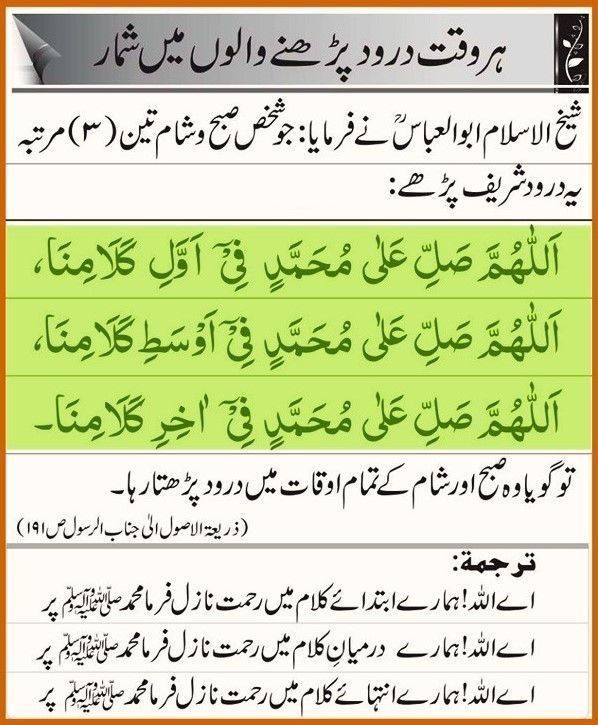 ہر وقت درود پڑھنے والوں میں شمار
شیخ الاسلام ابوالعباسؒ نے فرمایا: جو شخص صبح و شام تین (۳) مرتبہ
یہ درود شریف پڑھے:
اَللّٰهُمَّ صَلِّ عَلٰی مُحَمَّدٍ فِیْٓ اَوَّلِ كَلَامِنَا،
اَللّٰهُمَّ صَلِّ عَلٰی مُحَمَّدٍ فِیْٓ اَوْسَطِ كَلَامِنَا،
اَللّٰهُمَّ صَلِّ عَلٰی مُحَمَّدٍ فِیْٓ اٰخِرِ كَلَامِنَا۔
تو گویا وہ صبح اور شام کے تمام اوقات میں درود پڑھتا رہا۔
(ذریعۃ الاصول الیٰ جناب الرسول ص ۱۹۱)
ترجمة:
اے اللہ! ہمارے ابتدائے کلام میں رحمت نازل فرما محمد ﷺ پر
اے اللہ! ہمارے درمیانِ کلام میں رحمت نازل فرما محمد ﷺ پر
اے اللہ! ہمارے انتہائے کلام میں رحمت نازل فرما محمد ﷺ پر